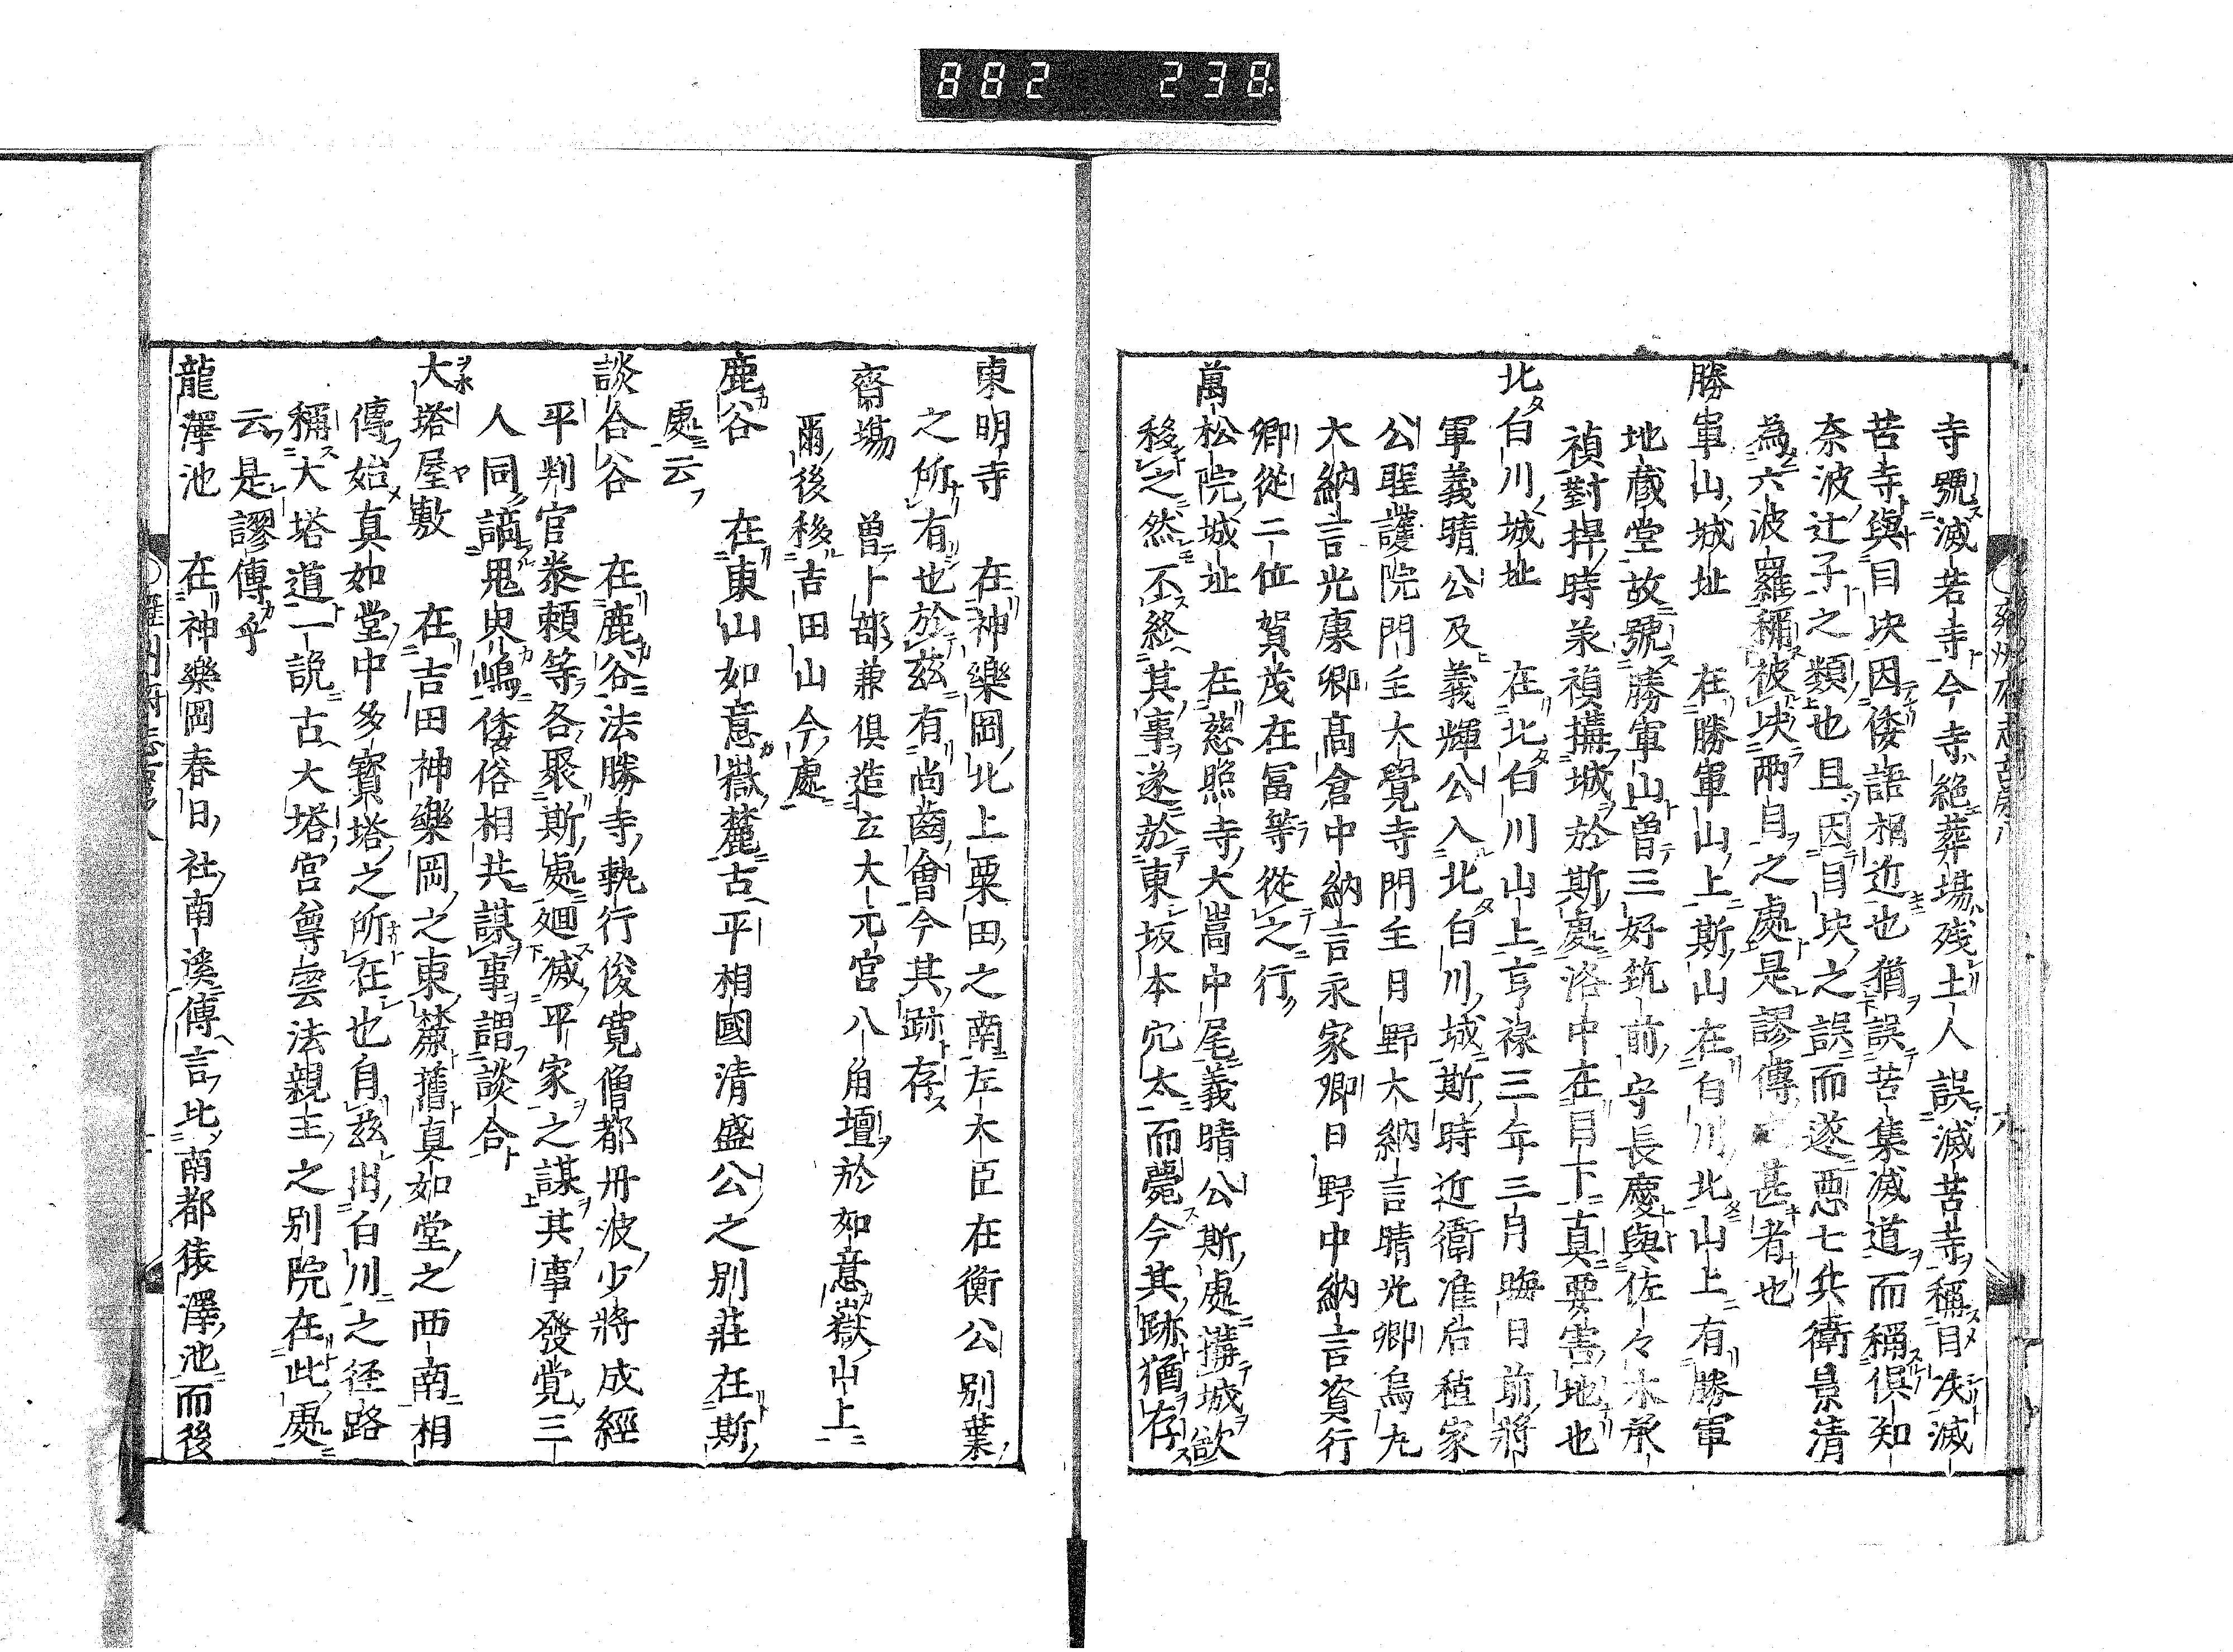 882 238
寺號滅若寺今寺絶葬場残土人誤滅苦寺稱目决滅
苦寺與目决因倭語相近也猶誤苦集滅道而稱俱知
奈波辻子之類也且因目决之誤而遂惡七兵衛景清
為六波羅稱彼决兩目之處是謬傳甚者也
勝軍山城址　在勝軍山上斯山在白川北山上有勝軍
地蔵堂故號勝軍山曽三好筑前守長慶與佐々木承
禎對捍時承禎搆城於斯處洛中在目下真要害地也
北白川城址　在北白川山上亨禄三年三月晦日前將
軍義晴公及義輝公入北白川城斯時近衞准后稙家
公聖護院門主大覺寺門主日野大納言晴光卿烏丸
大納言光康卿高倉中納言永家卿日野中納言資行
卿從二位賀茂在冨等從之行
萬松院城址　在慈照寺大嵩中尾義晴公斯處搆城欲
移之然不終其事遂於東坂本穴太而薨今其跡猶存
東明寺　在神樂岡北上粟田之南左大臣在衡公别業
之所有也於茲有尚齒會今其跡存
齋場　曽卜部兼俱造立大元宮八角壇於如意嶽山上
爾後移吉田山今處
鹿谷　在東山如意嶽麓古平相國清盛公之别莊在斯
處云
談合谷　在鹿谷法勝寺執行俊寛僧都丹波少將成經
平判官㤗頼等各聚斯處廻滅平家之謀其事發覺三
人同謫鬼界嶋倭俗相共謀事謂談合
大塔屋敷　在吉田神樂岡之東麓舊真如堂之西南相
傳始真如堂中多寳塔之所在也自茲出白川之径路
稱大塔道一説古大塔宮尊雲法親王之别院在此處
云是謬傳乎
龍澤池　在神樂岡春日社南溪傳言比南都猿澤池而後